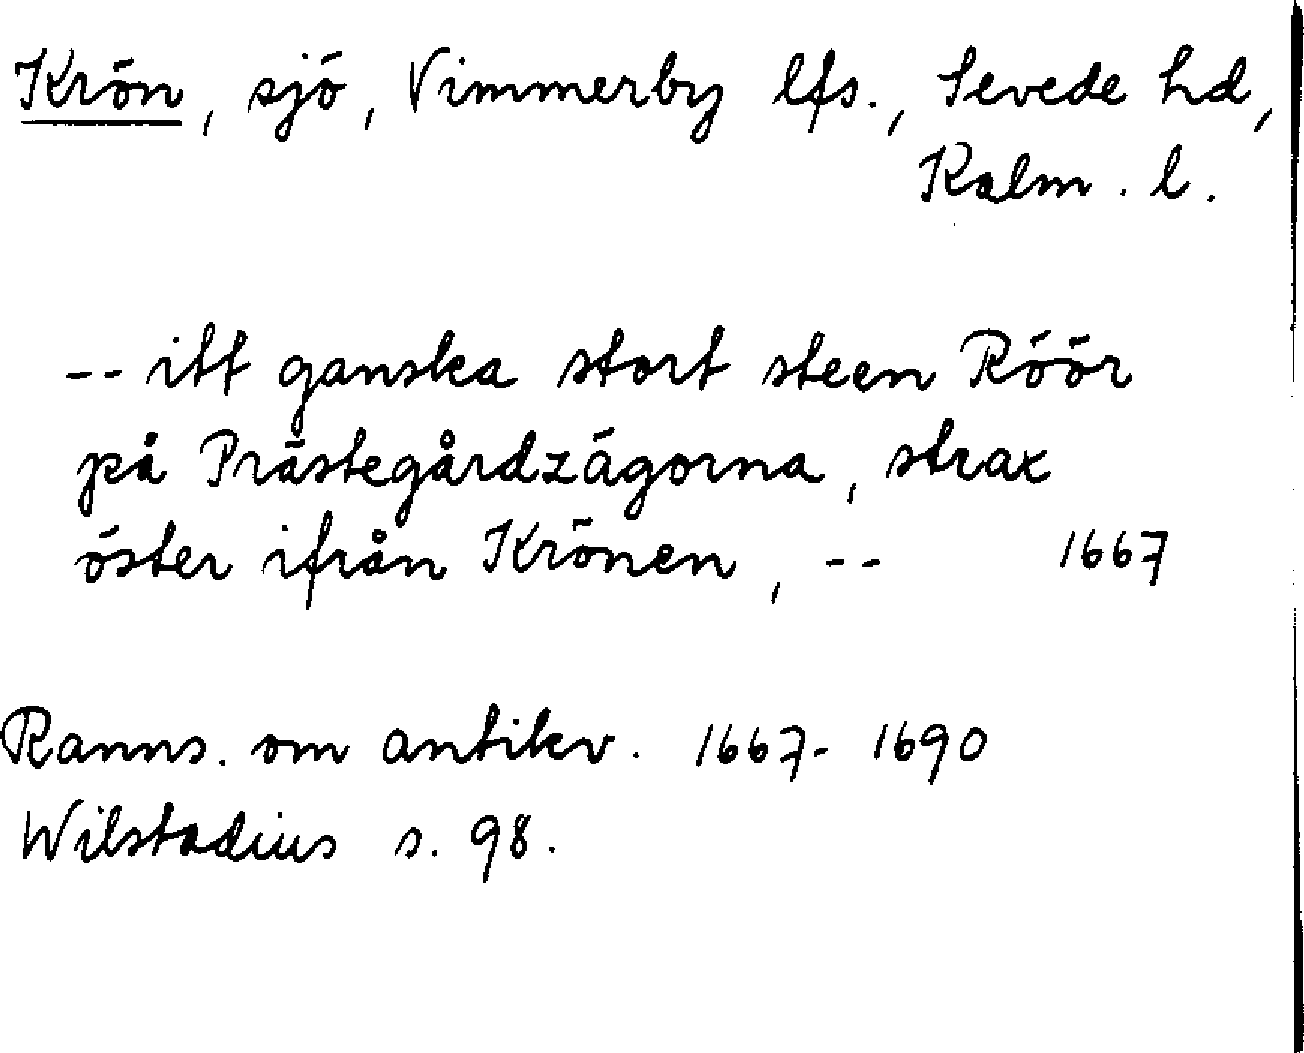 Krön, sjö, Vimmerby lfs., Sevede hd,
Kalm. l.
-- itt ganska stort steen Röör
på Prästegårdzägorna, strax
öster ifrån Krönen, -- 1667
Ranns. om antikv. 1667-1690
Wilstadius s. 98.